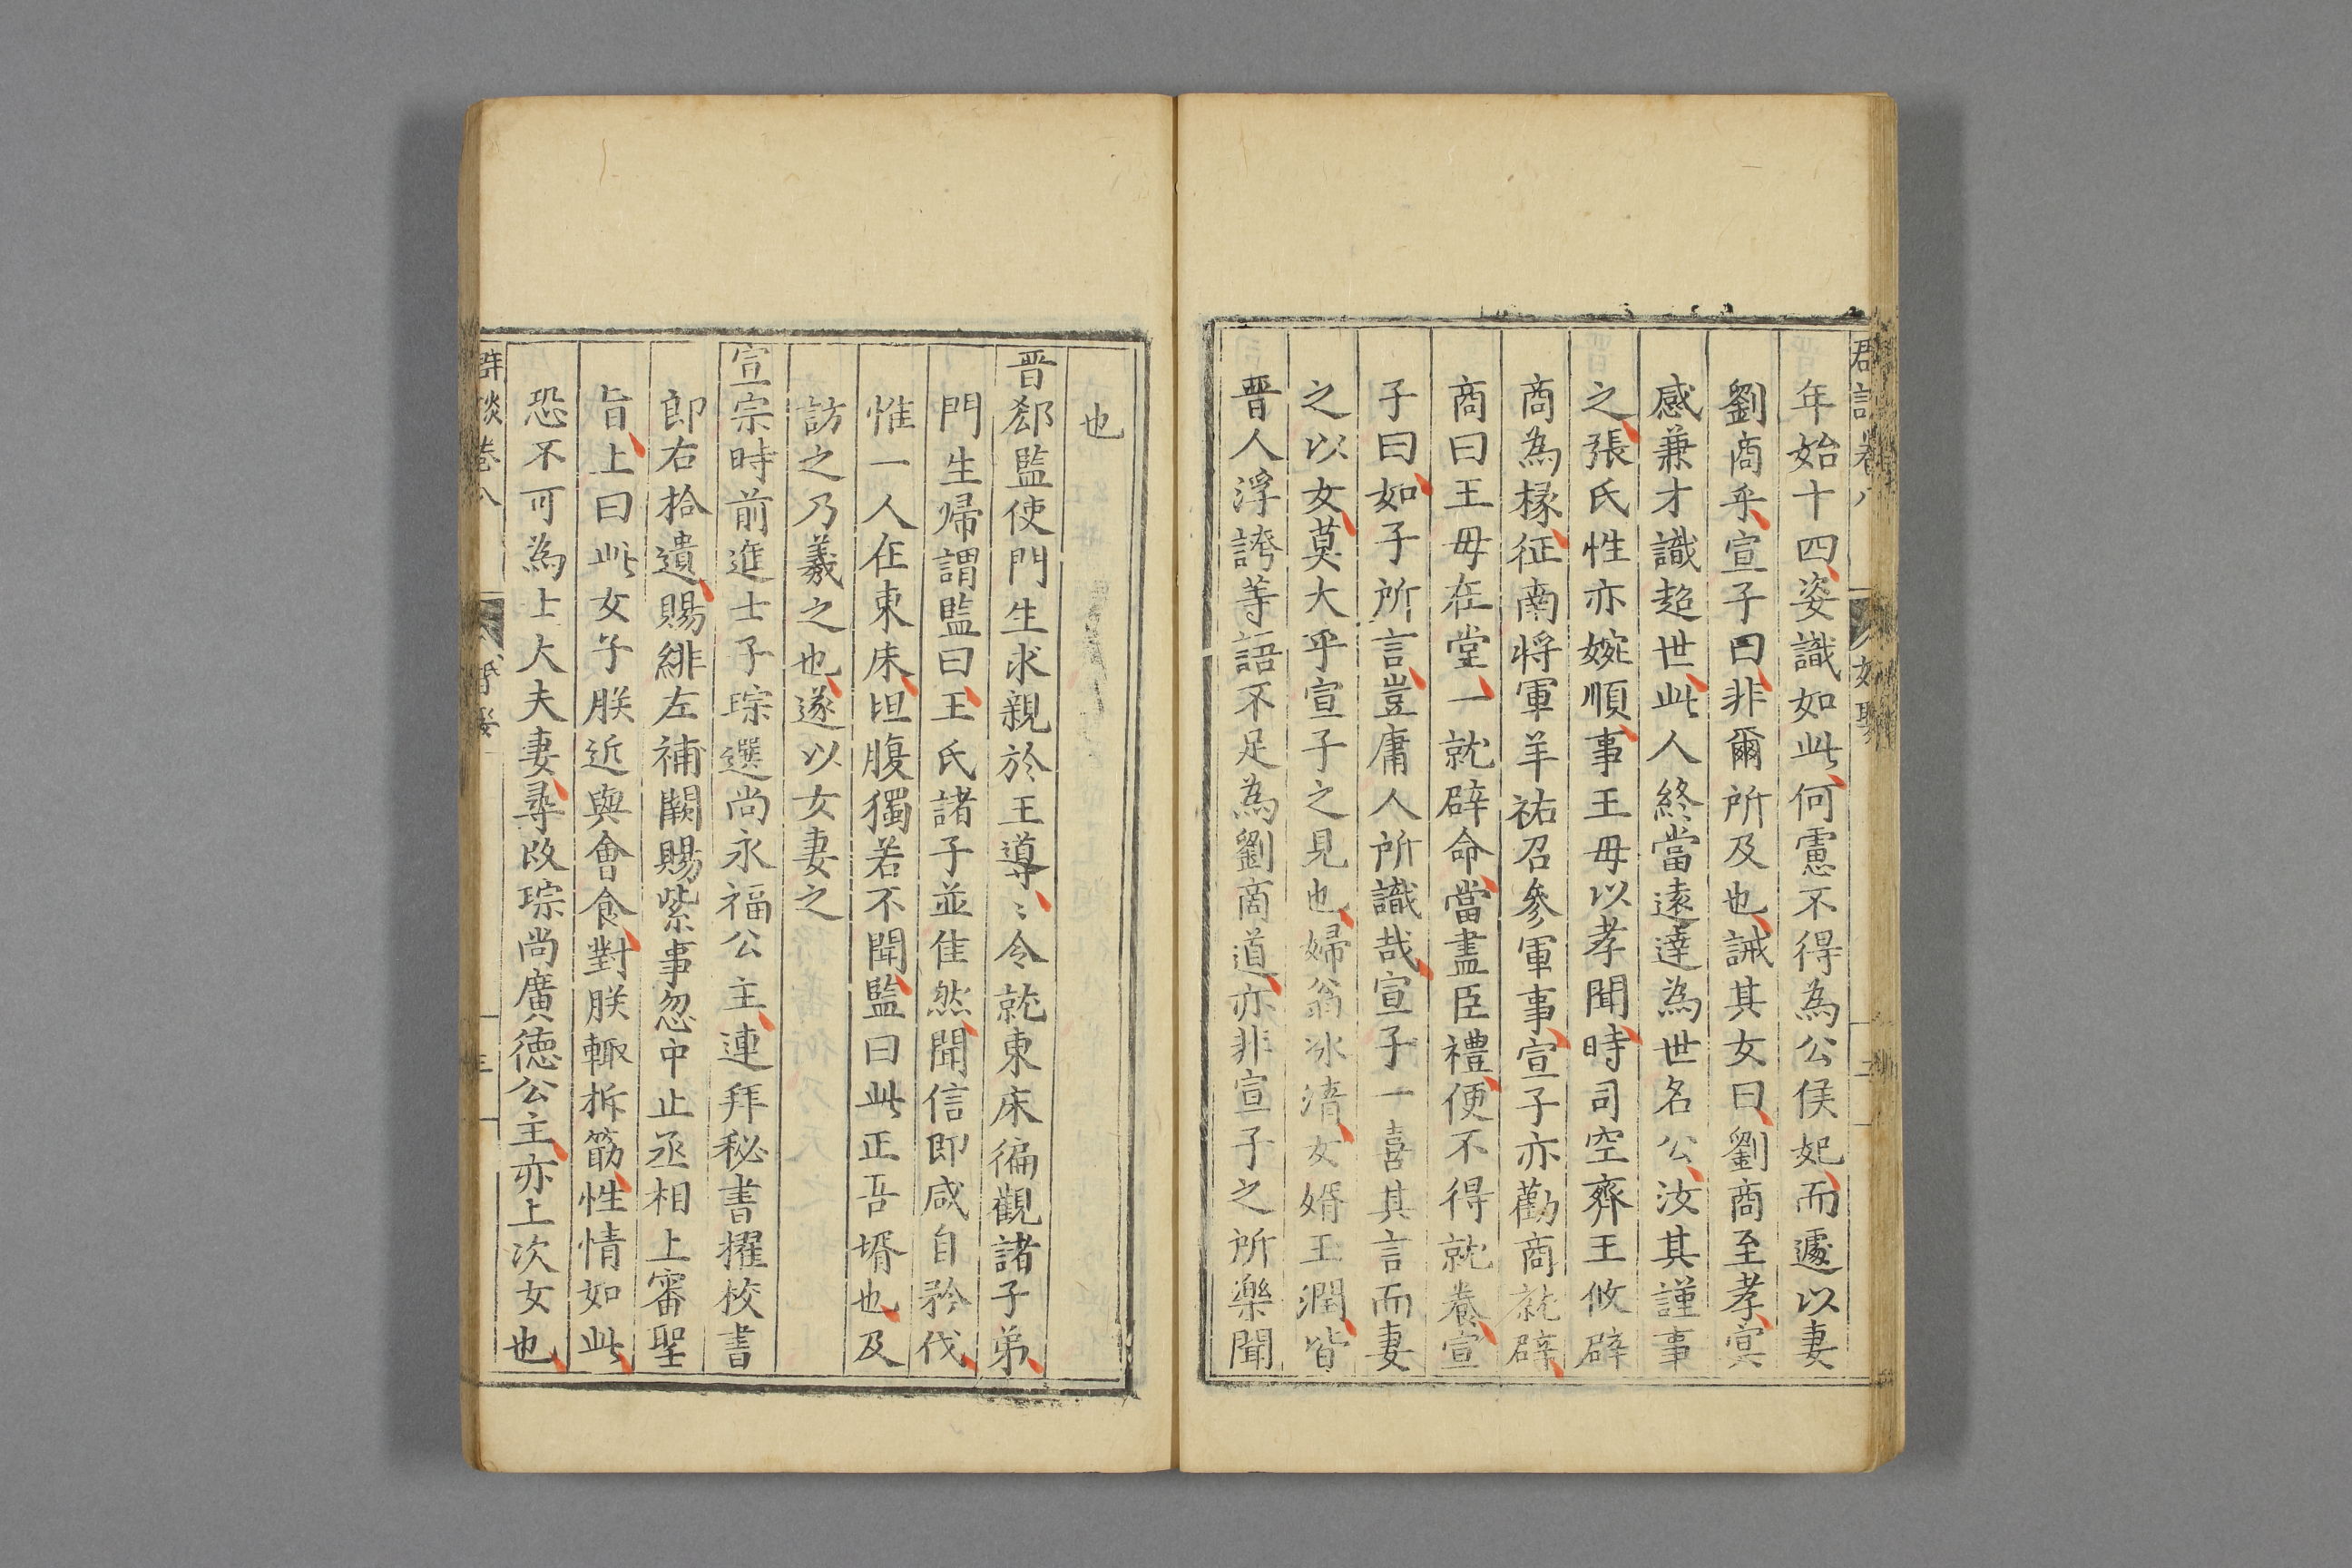 年始十四姿識如此何慮不得為公侯妃而遽以妻
劉商乎宣子曰非爾所及也誡其女曰劉商至孝冥
感兼才識超世此人終當遠達為世名公汝其謹事
之張氏性亦婉順事王母以孝聞時司空齊王攸辟
商為椽征南將軍羊祜召參軍事宣子亦勸商就辟
商曰王母在堂一就辟命當盡臣禮便不得就養宣
子曰如子所言豈庸人所識哉宣子一喜其言而妻
之以女莫大乎宣子之見也婦翁冰清女婿玉潤皆
晉人浮誇等語不足為劉商道亦非宣子之所樂聞
也
晉郄監使門生求親於王導〻令就東床徧觀諸子弟
門生歸謂監曰王氏諸子並佳然聞信即咸自矜伐
惟一人在東床坦腹獨若不聞監曰此正吾壻也及
訪之乃羲之也遂以女妻之
宣宗時前進士子琮選尚永福公主連拜秘書擢校書
郎右拾遺賜緋左補闕賜紫事忽中止丞相上審聖
旨上曰此女子朕近與會食對朕輙拆筯性情如此
恐不可為士大夫妻尋改琮尚廣德公主亦上次女也
群談卷八 婚娶 三